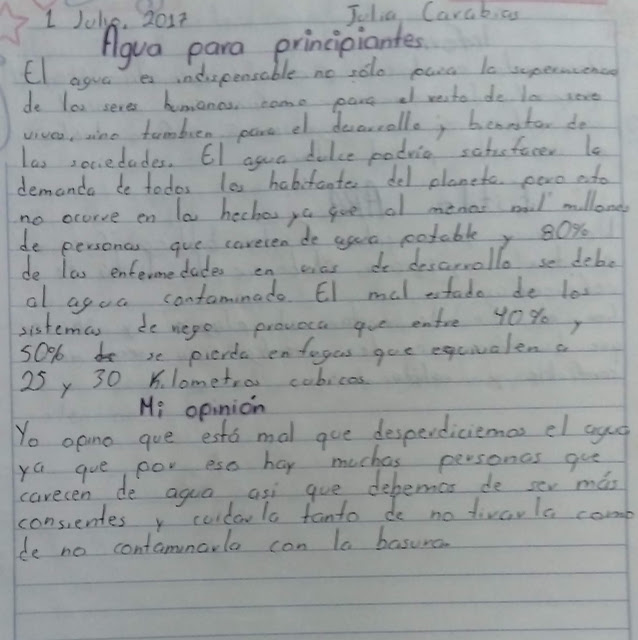 1 Julio, 2017 Julia Carabias
Agua para principiantes.
El agua es indispensable no sólo para la supervivencia
de los seres humanos, como para el resto de los seres
vivos, sino tambien para el desarrollo y bienestar de
las sociedades. El agua dulce podría satisfacer la
demanda de todos los habitantes del planeta pero esto
no ocurre en los hechos, ya que al menos mil millones
de personas que carecen de agua potable y 80%
de las enfermedades en vias de desarrollo se debe
al agua contaminada. El mal estado de los
sistemas de riego provoca que entre 40% y
50% se pierda en fugas que equivalen a
25 y 30 Kilometros cubicos.
Mi opinión
Yo opino que está mal que desperdiciemos el agua
ya que por eso hay muchas personas que
carecen de agua asi que debemos de ser más
consientes y cuidarla tanto de no tirarla como
de no contaminarla con la basura.